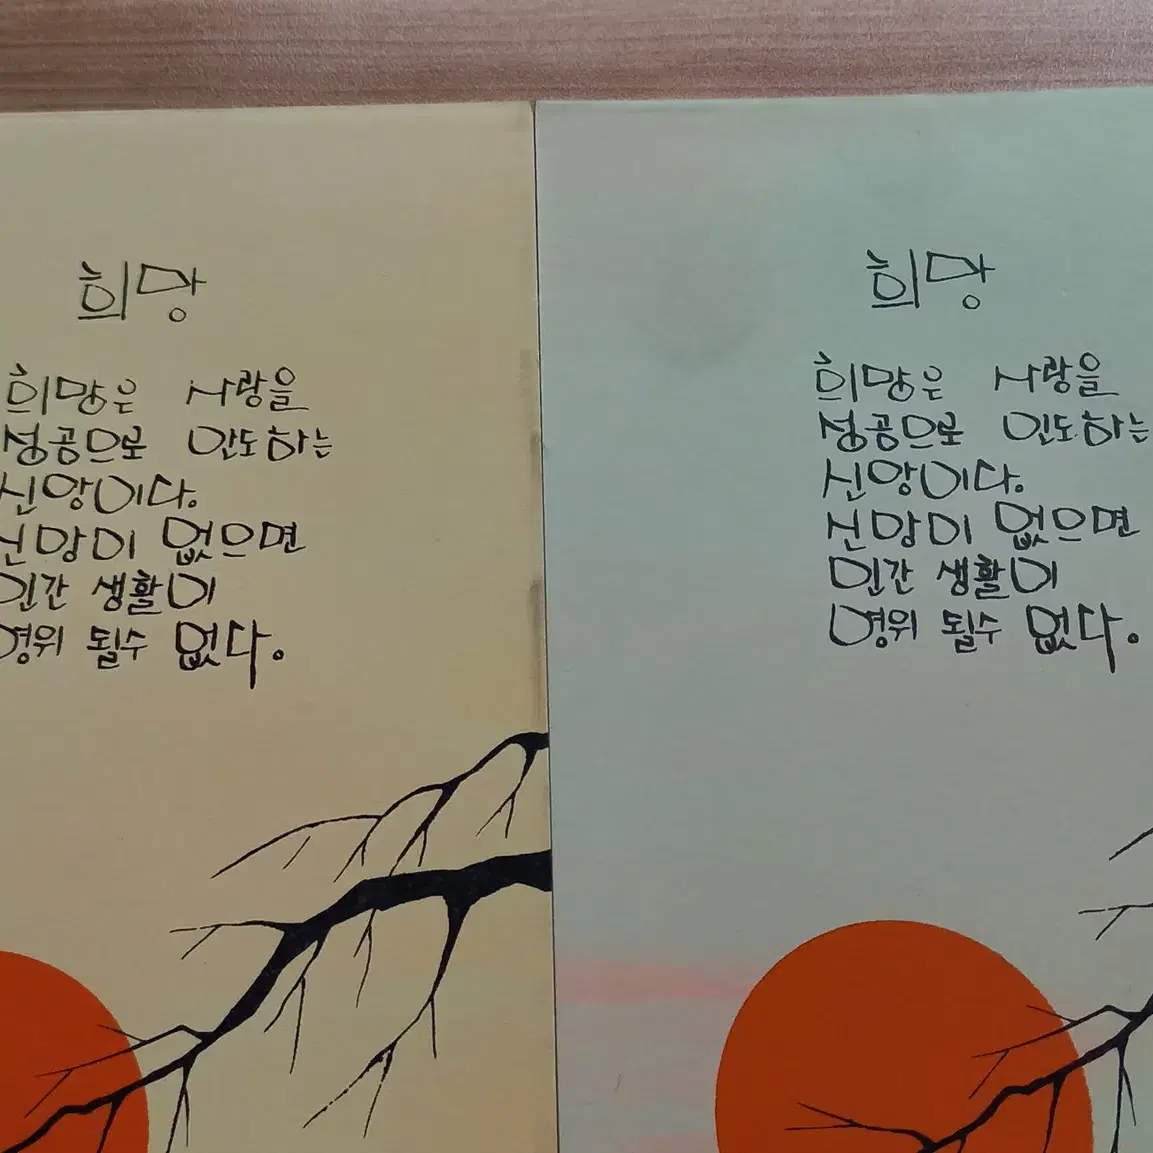 희망
희망은 사랑을
성공으로 인도하는
신앙이다.
신망이 없으면
인간 생활이
영위 될수 없다.
희망
희망은 사랑을
성공으로 인도하는
신앙이다.
신망이 없으면
인간 생활이
영위 될수 없다.